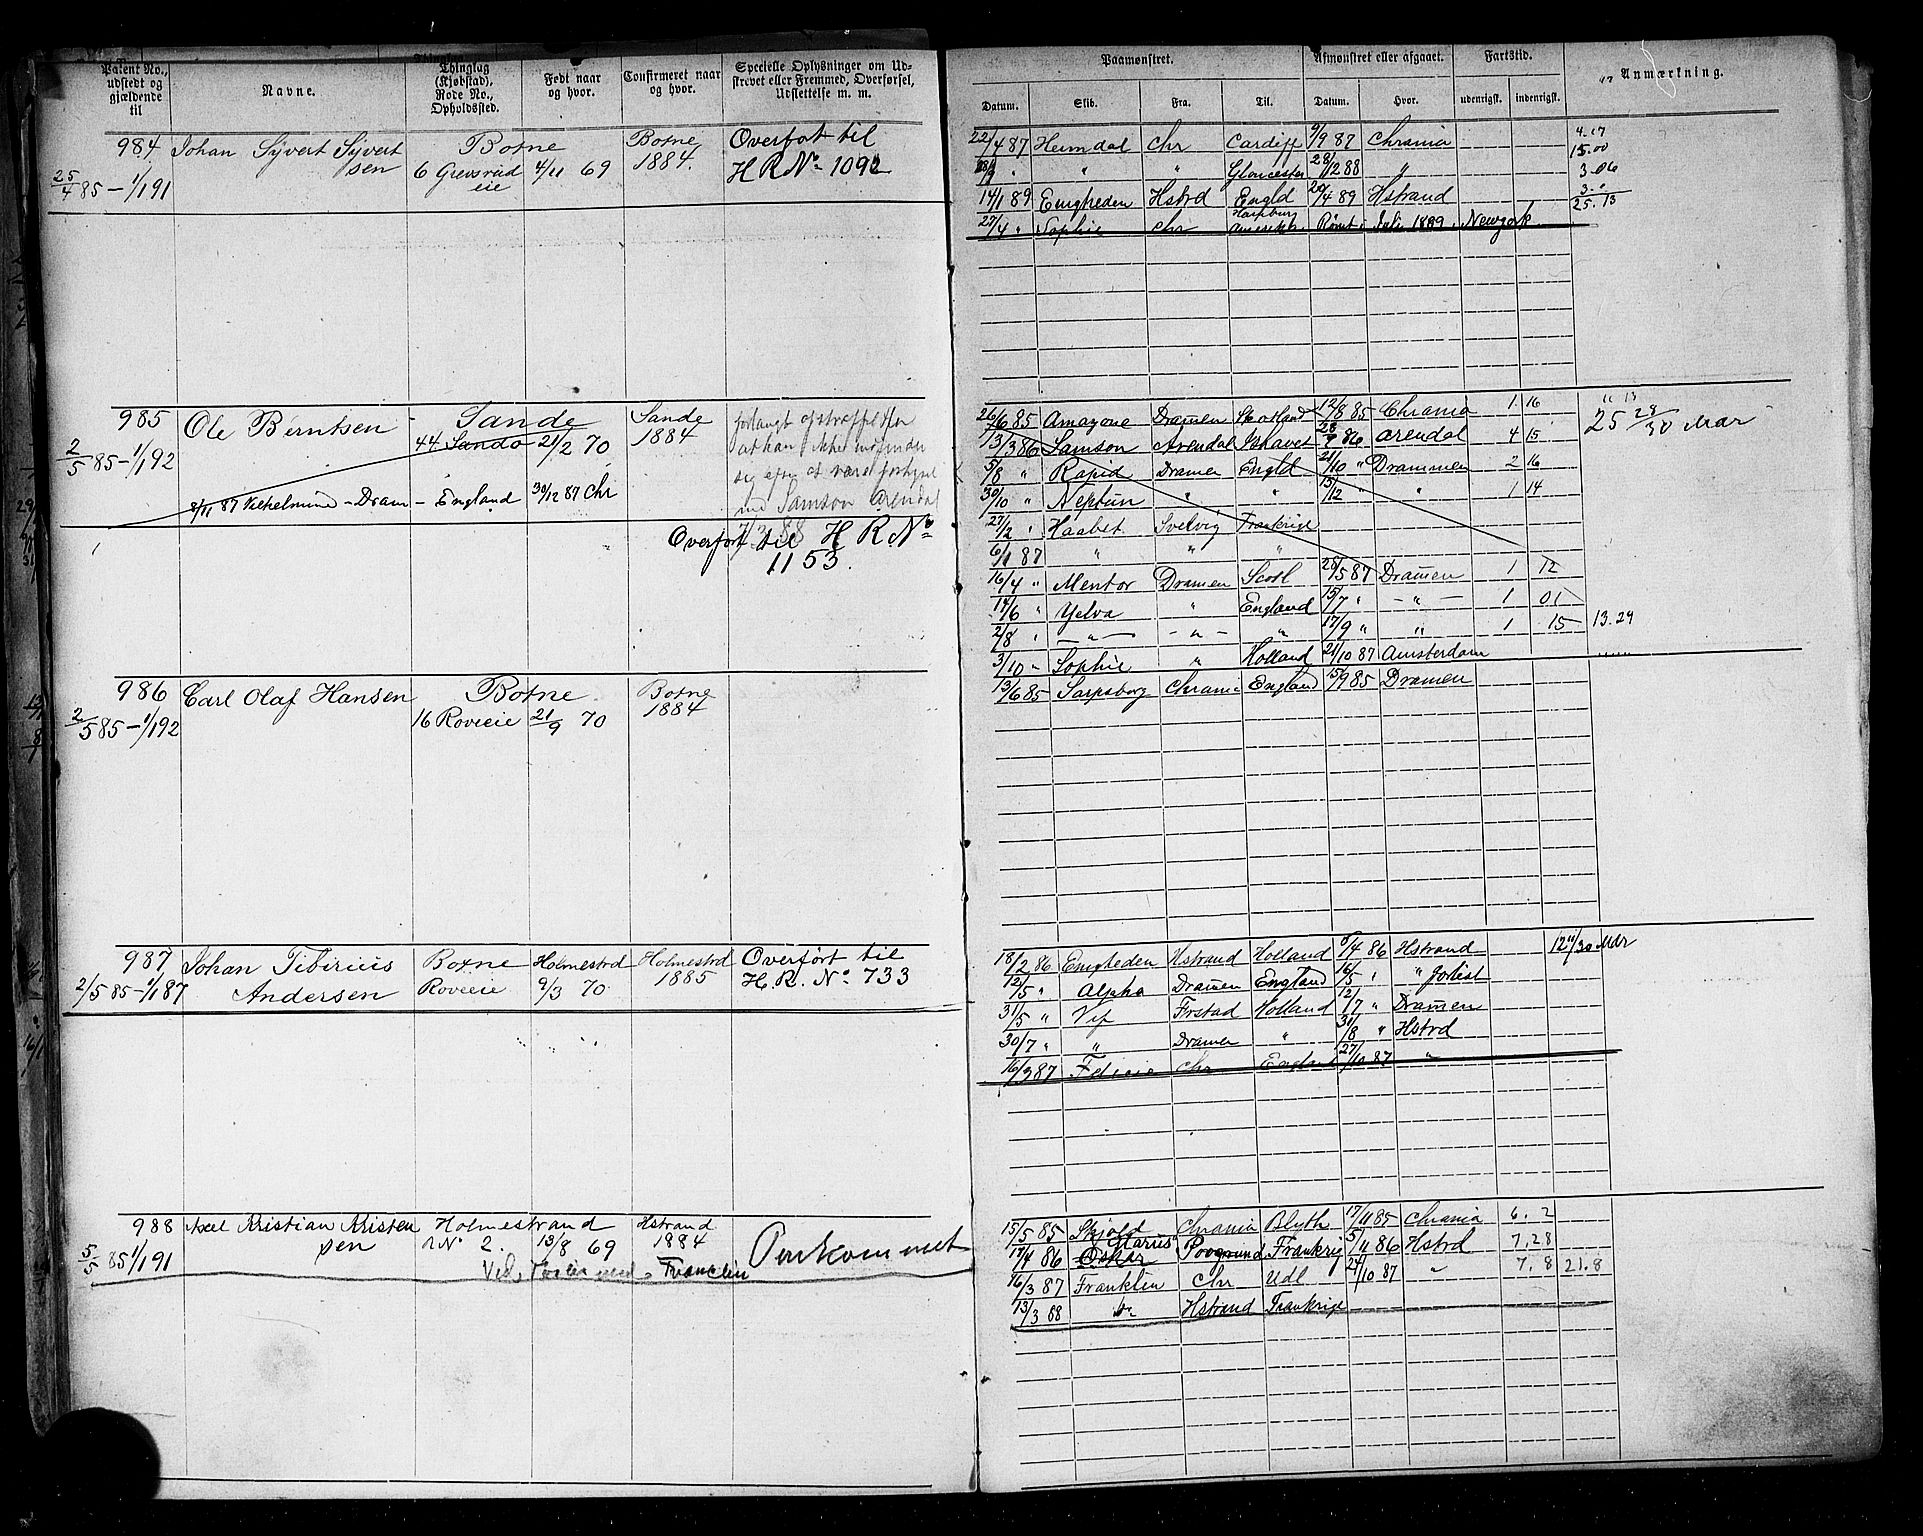 Patent No., udstedt og gjældende til
Navne.
Thinglag (Kjøbstad), Rode No., Opholdssted.
Født naar og hvor.
Confirmeret naar og hvor.
Specielle Oplysninger om Udskrevet eller Fremmed, Overførsel, Udslettelse m. m.
Paamønstret.
Afmønstret eller afgaaet.
Fartstid.
Anmærkning.
Datum.
Skib.
Fra.
Til.
Datum.
Hvor.
udenrigsk.
indenrigsk.
984 Johan Syvert Syvertsen Botne Botne Overført til
25/4 85 – 1/1 91 6 Grevsrud eie 4/11 69 1884. H R No 1092
22/4 87 Heimdal Chr Cardiff 9/9 87 Chrania 4.17
" " Gloucester 28/12 88 " 15.00
3.06
14/1 89 Emigheden Hstrd Engld 20/4 89 Hstrand 3."
25.13
27/4 " Sophie Chr Rømt i Juli 1889 Newyork
985 Ole Berntsen Sande Sande
2/5 85 – 1/1 92 44 Sando 21/2 70 1884
8/11 87 Vilhelmine – Dram – England 30/12 87 Chr
med Samson Arendal
Overført til H R No
1153.
26/6 85 Amazone Dramen Skotland 12/8 85 Chrania 1 16
13/3 86 Samson Arendal 28/7 86 Arendal 4 15
25 28/30 Mdr
5/8 " Rapid Dramen Engld 21/10 " Drammen 2 16
30/10 " Neptun " " 15/12 " " 1 14
27/2 " Haabet Svelvig Frankrige
6/1 87 " " "
16/4 " Mentor Dramen Scotl 28/5 87 Dramen 1 12
14/6 " Yelva " England 15/7 " – " – 1 01
2/8 " – " – – " – " 17/9 " " 1 15 13.29
3/10 " Sophie " Holland 21/10 87 Amsterdam
986 Carl Olaf Hansen Botne Botne
2/5 85 – 1/1 92 16 Roveeie 21/9 70 1884
13/6 85 Sarpsborg Chrania England 15/9 85 Dramen
987 Johan Tiberius Botne Holmestrd Holmestrd Overført til
2/5 85 – 1/1 87 Andersen Roveeie 9/3 70 1885 H. R. No 733
18/2 86 Emigheden Hstrand Holland 8/4 86 Hstrand 12 11/30 Mdr
12/5 " Alpha Dramen England 16/5 " " forlist
31/5 " Vip Frstad Holland 12/7 " Dramen
30/7 " " Dramen " 31/8 " Hstrd
16/3 87 Felicia Chr England 27/10 87 "
988 Axel Kristian Kristensen Holmestrand Hstrand
5/5 85 1/1 91 No 2. 13/8 69 1884 Omkommet
Ved Forlis med Franclin
15/5 85 Skjold Chrania Blyth 17/11 85 Chrania 6. 2
17/4 86 Oskar Porsgrund Frankrig 5/11 86 Hstrd 7.28
16/3 87 Franklin Chr Udl 24/10 87 " 7. 8 21.8
13/3 88 " Hstrand Frankrige